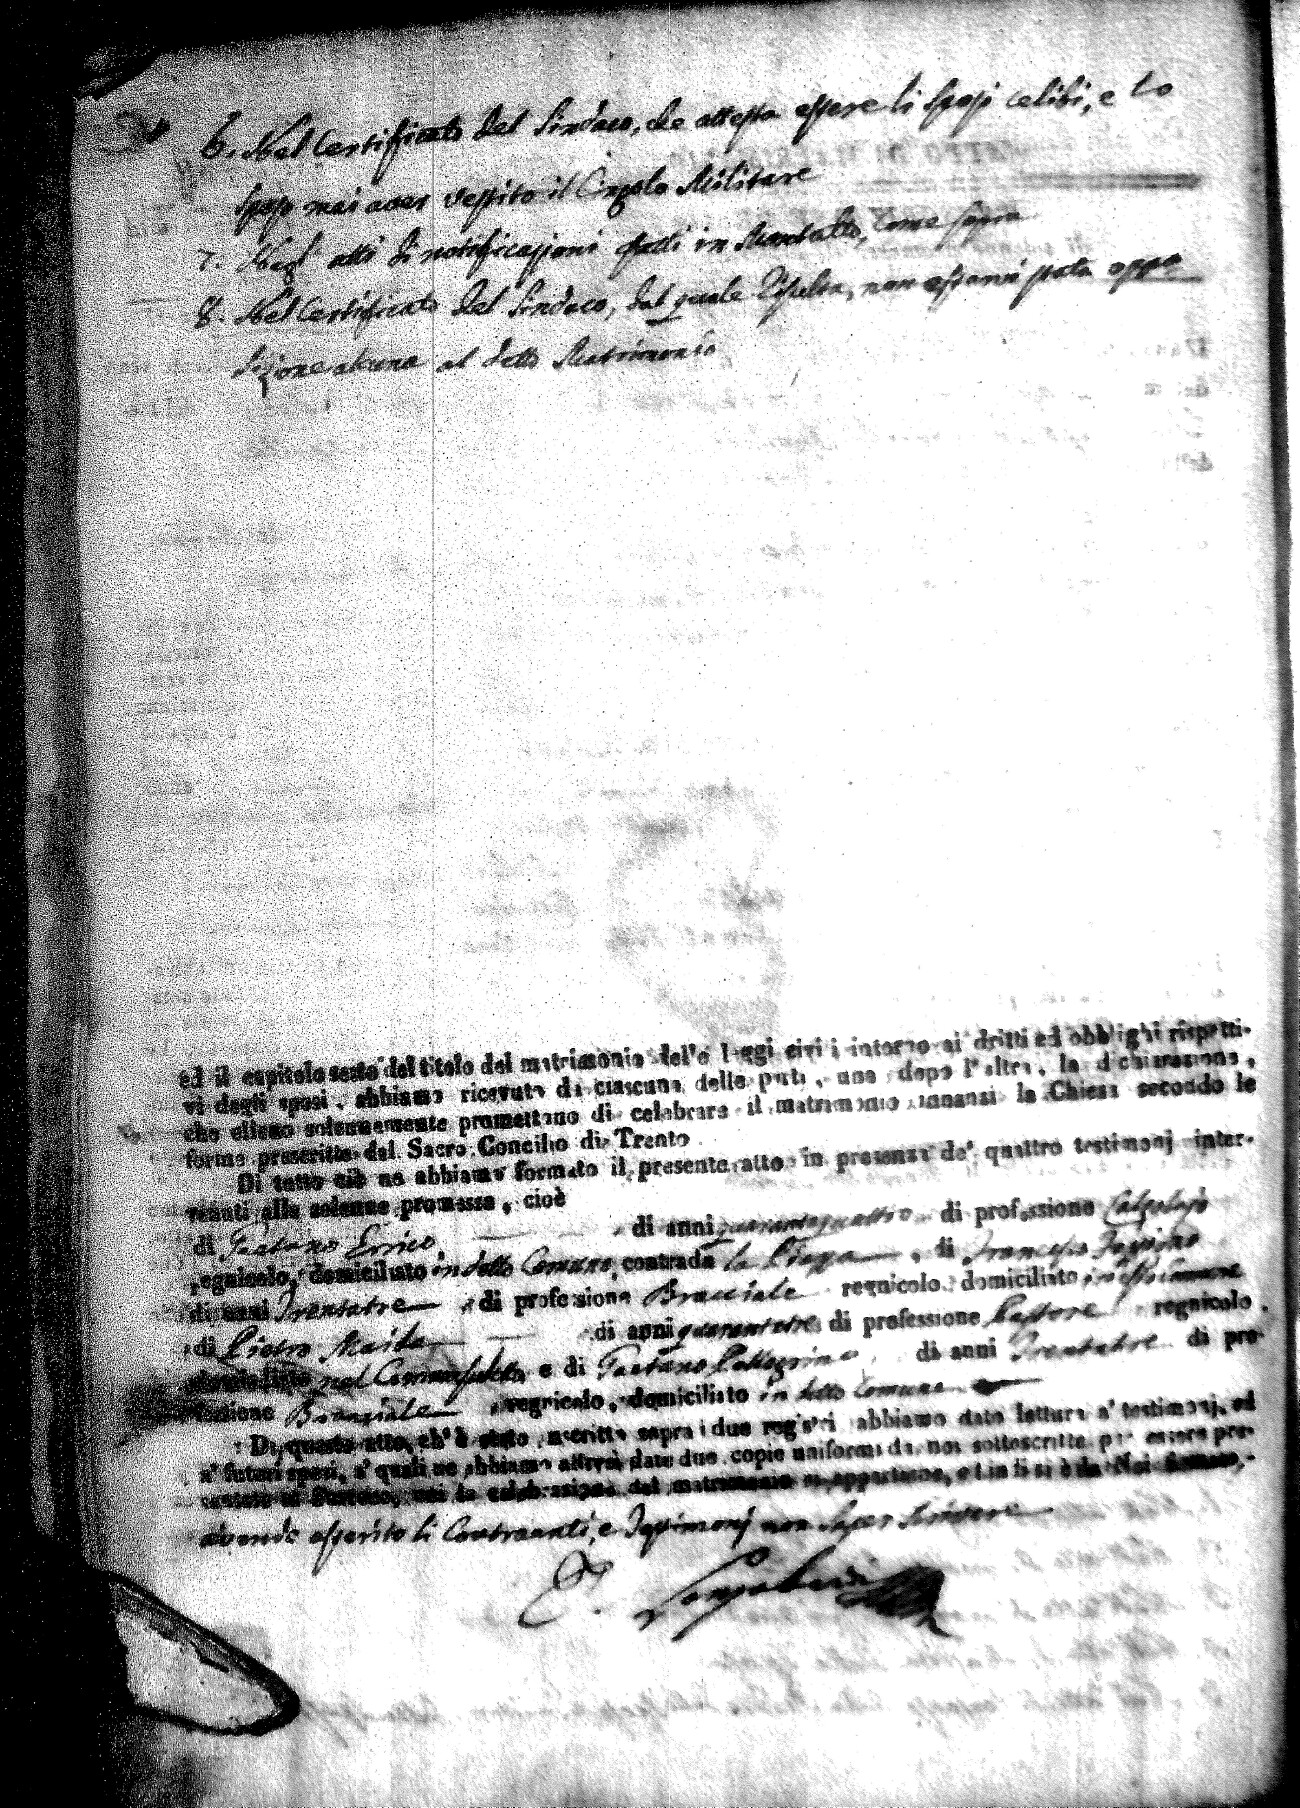 6. Nel Certificato del Sindaco, che attesta essere li sposi celibi, e lo
sposo mai aver vestito il Cingolo Militare
7. Negl' atti di notificazioni fatti in, come sopra
8. Nel Certificato del Sindaco, dal quale risulta, non esservi stata oppo
sizione alcuna al detto Matrimonio
ed il capitolo sesto del titolo del matrimonio delle leggi civili intorno ai dritti ed obblighi rispetti-
vi degli sposi, abbiamo ricevuto da ciascuna delle parti, una dopo l'altra, la dichiarazione,
che elleno solennemente promettono di celebrare il matrimonio innanzi la Chiesa secondo le
forme prescritte dal Sacro Concilio di Trento
Di tutto ciò ne abbiamo formato il presente atto in presenza de' quattro testimonj inter-
venuti alla solenne promessa, cioè
di Gaetano Errico di anni quarantaquattro di professione Calzolajo
regnicolo, domiciliato in detto Comune, contrada la Piazza, di Francesco
di anni Trentatre di professione Bracciale regnicolo domiciliato in esso Comune
di Pietro Maida di anni quarantatre di professione Pastore regnicolo,
domiciliato nel Comune suddetto e di Gaetano Pellegrino, di anni Trentatre di pro-
fessione Bracciale regnicolo, domiciliato in detto Comune
Di questo atto, ch' è stato inscritto sopra i due registri abbiamo dato lettura a' testimonj, ed
a' futuri sposi, a' quali ne abbiamo altresì date due copie uniformi da noi sottoscritte per essere pre-
sentate al Parroco, cui la celebrazione del matrimonio si appartiene, e indi si è da Noi firmato,
avendo asserito li Contraenti, e Testimonj non saper scrivere